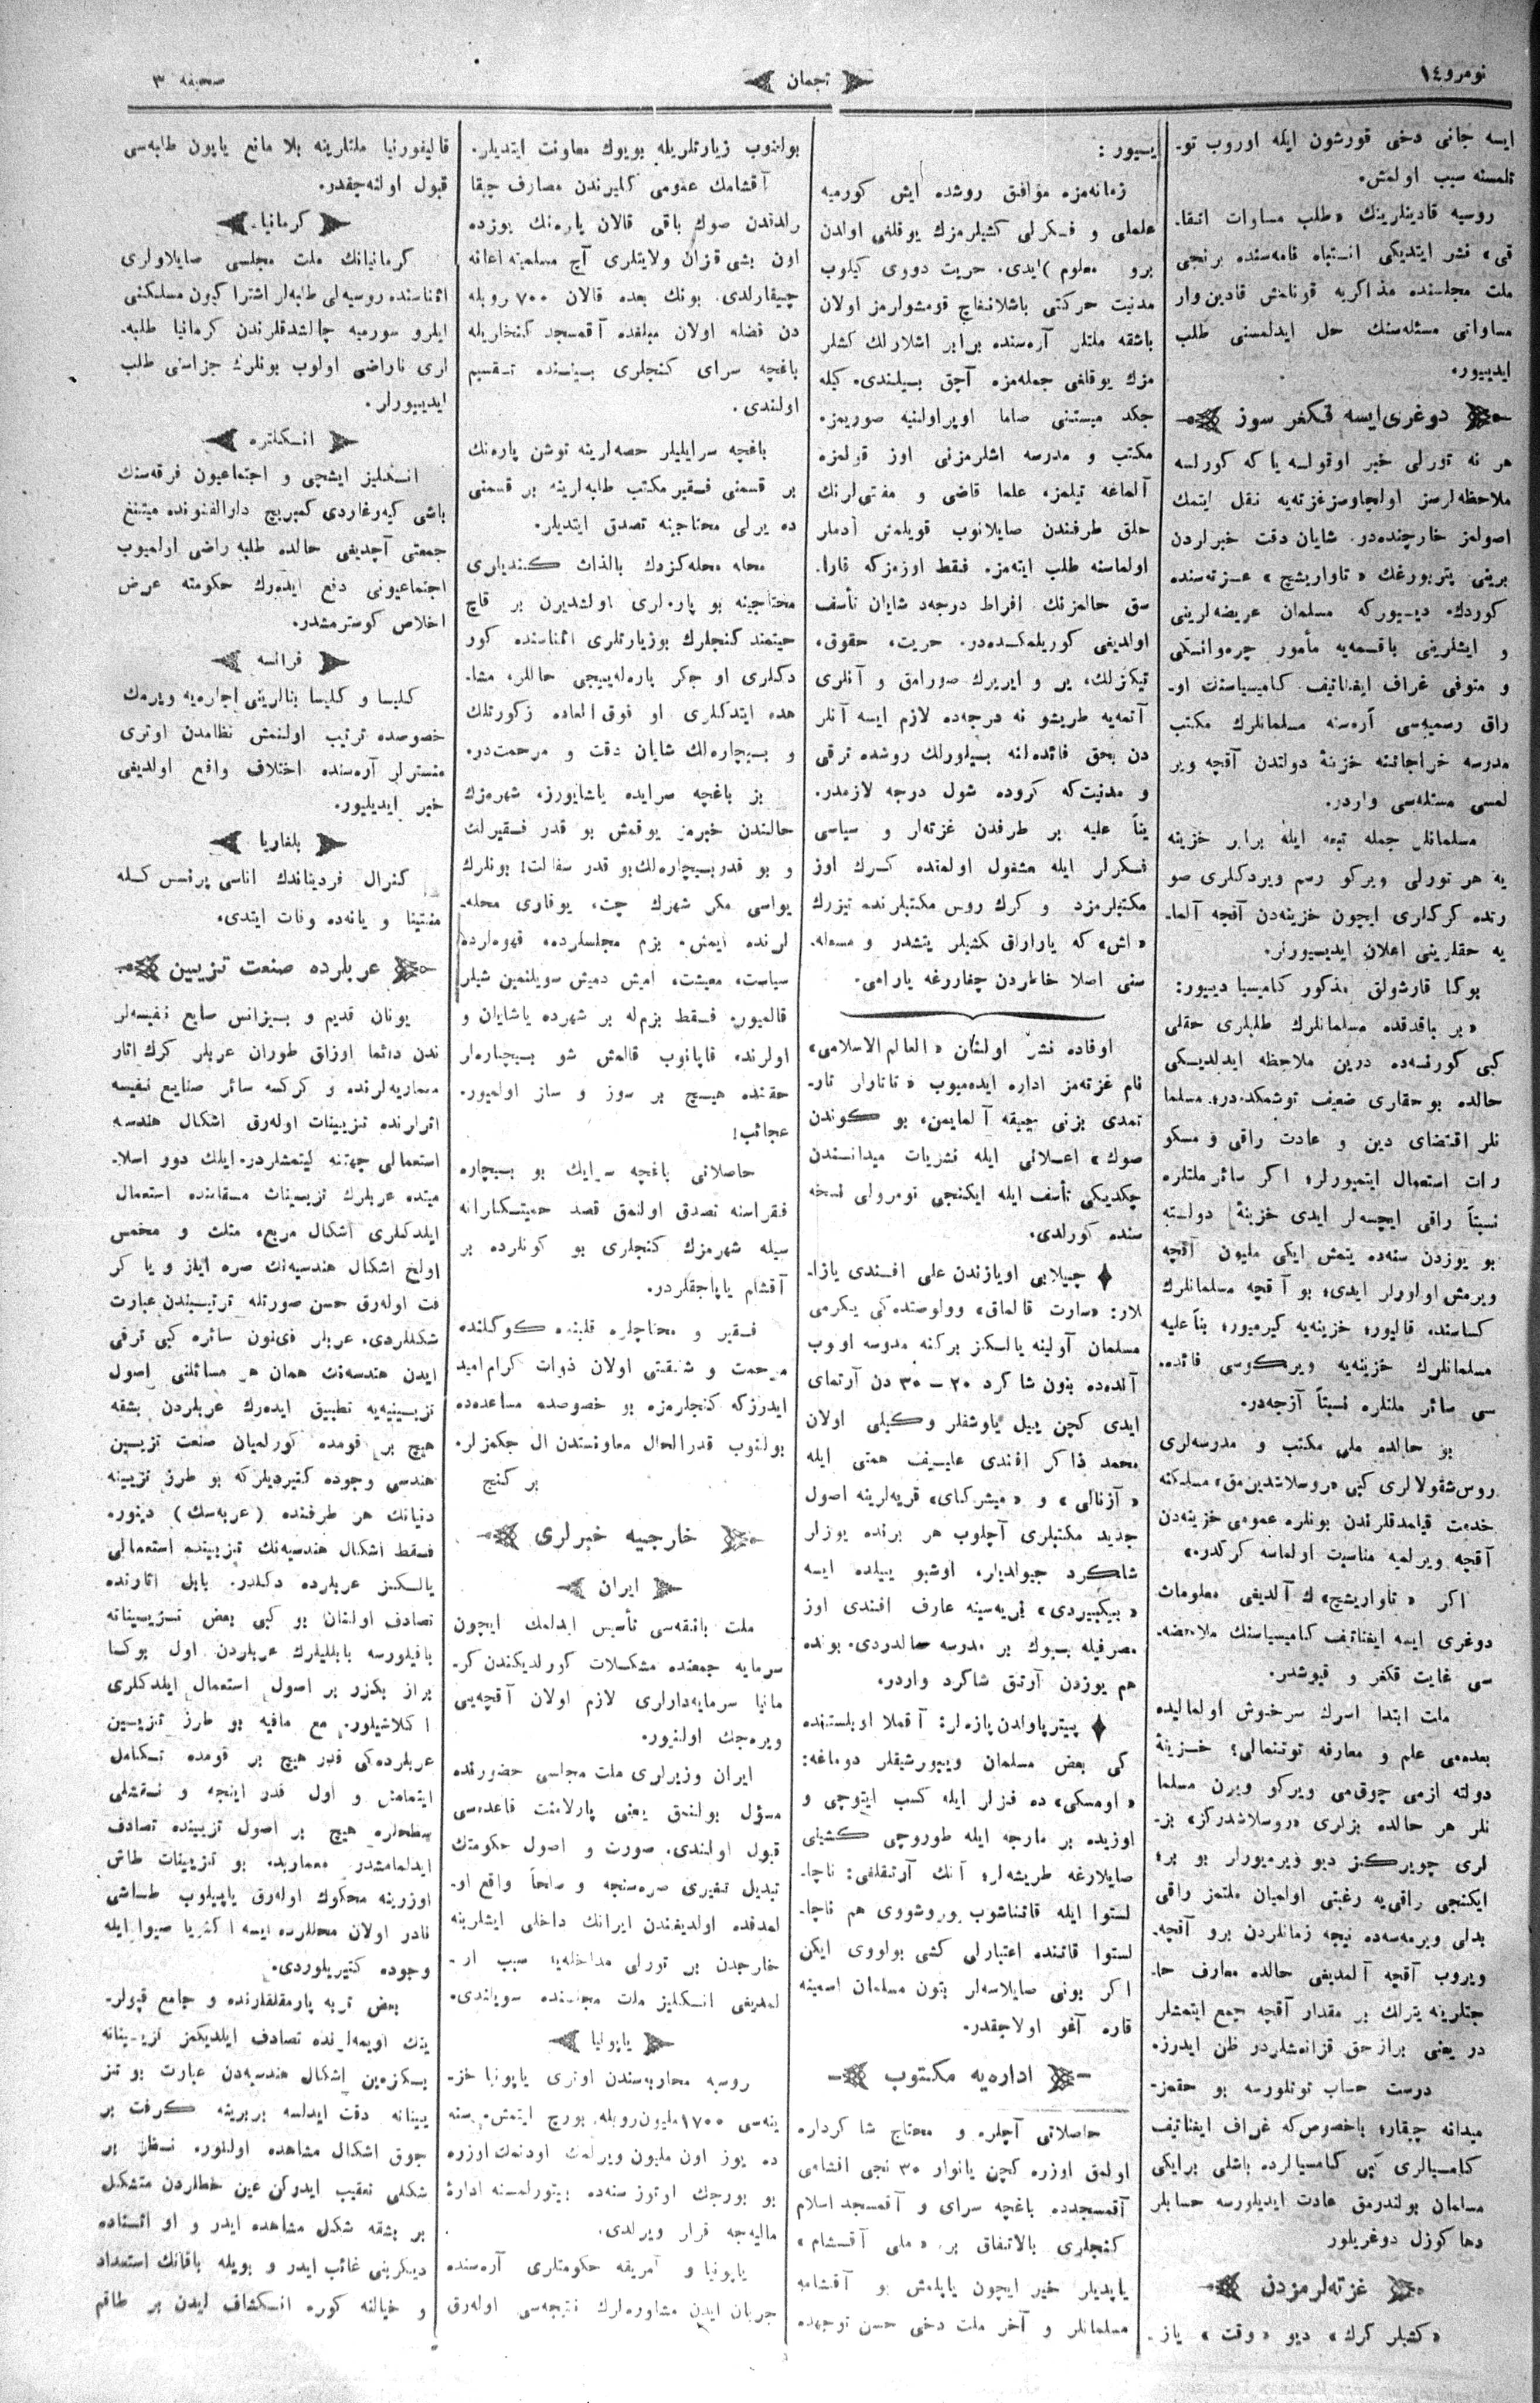 نومرو ١٤
ترجمان
صحیفه ٣
ایسه جانی دخی قورشون ایله اوروب تو-
تلمسنه سبب اولمش.
روسیه قادینلرینك «طلب مساوات اتفا-
قی» نشر ایتدیكی انتباه نامه‌سنده برنجی
ملت مجلسنده مذاكریه قونلمش قادین وار
مساواتی مسئله‌سنك حل ایدلمسنی طلب
ایدییور.
دوغری ایسه قكغر سوز
هر نه تورلی خبر اوقولسه یا كه كورلسه
ملاحظه‌لرسز اولچاوسز غزته‌یه نقل ایتمك
اصولمز خارچنده‌در. شایان دقت خبرلردن
برینی پتربورغك «تاواریشچ» غزته‌سنده
كوردك. دییوركه مسلمان عریضه‌لرینی
و ایشلرینی باقسمه‌یه مأمور چره‌وانسكی
و متوفی غراف ایغناتیف كامیسیاسنك او-
راق رسمیه‌سی آره‌سنه مسلمانلرك مكتب
مدرسه خراجاتنه خزینهٔ دولتدن آقچه ویر
لمسی مسئله‌سی واردر.
مسلمانلر جمله تبعه ایله برابر خزینه
یه هر تورلی ویركو رسم ویردكلری صو
رتده كركلری ایچون خزینه‌دن آقچه آلما-
یه حقلرینی اعلان ایدییورلر.
بوكا قارشولق مذكور كامیسیا دییور:
«بر باقدقده مسلمانلرك طلبلری حقلی
كبی كورنسه‌ده درین ملاحظه ایدلدیكی
حالده بو حقلری ضعیف توشمكده‌در؛ مسلما
نلر اقتضای دین و عادت راقی و مسكو
رات استعمال ایتمیورلر؛ اكر سائر ملتلره
نسبتاً راقی ایچسه‌لر ایدی خزینهٔ دولته
بو یوزدن سنه‌ده یتمش ایكی ملیون آقچه
ویرمش اولورلر ایدی؛ بو آقچه مسلمانلرك
كساسنده قالیور؛ خزینه‌یه كیرمیور؛ بناً علیه
مسلمانلرك خزینه‌یه ویركوسی فائده-
سی سائر ملتلره نسبتاً آزجه‌در.
بو حالده ملی مكتب و مدرسه‌لری
روس شقولالری كبی «روسلاشدیرمق» مسلكنه
خدمت قیلمدقلرندن بونلره عمومی خزینه‌دن
آقچه ویرلمیه مناسبت اولماسه كركدر.»
اكر «تاواریشچ» ك آلدیغی معلومات
دوغری ایسه ایغناتیف كامیسیاسنك ملاحظه-
سی غایت قكغر و قیوشدر.
ملت ابتدا اسرك سرخوش اولمالیده
بعده‌می علم و معارفه توتنمالی؟ خزینهٔ
دولته ازمی چوق‌می ویركو ویرن مسلما
نلر هر حالده بزلری «روسلاشدركز» بز-
لری چویركز دیو ویرمیورلر بو بر؛
ایكنجی راقی‌یه رغبتی اولمیان ملتمز راقی
بدلی ویرمه‌سه‌ده نیچه زمانلردن برو آقچه-
ویروب آقچه آلمدیغی حالده معارف حا-
جتلرینه یترلك بر مقدار آقچه جمع ایتمشلر
در یعنی براز حق قزانمشلردر ظن ایدرز.
درست حساب توتلورسه بو حقمز-
میدانه چیقار؛ باخصوص‌كه غراف ایغناتیف
كامیسیالری كبی كامیسیالرده باشلی بر ایكی
مسلمان بولندرمق عادت ایدیلورسه حسابلر
دها كوزل دوغریلور
غزته‌لرمزدن
«كشیلر كرك» دیو «وقت» یاز-
یسیور:
زمانه‌مزه موافق روشده ایش كورمیه
علملی و فكرلی كشیلرمزك یوقلغی اولدن
برو معلوم ایدی. حریت دوری كیلوب
مدنیت حركتی باشلانغاچ قومشولرمز اولان
باشقه ملتلر آره‌سنده برابر اشلارلك كشلر
مزك یوقلغی جمله‌مزه آچق بیلندی. كیله
جكد میستنی صاما اویراولنیه صوریمز.
مكتب و مدرسه اشلرمزنی اوز قولمزه
آلماغه تیلمز، علما قاضی و مفتی‌لرنك
خلق طرفندن صایلانوب قویلمش آدملر
اولماسنه طلب ایته‌مز. فقط اوزمزكه قارا-
سق حالمزنك افراط درجه‌ده شایان تأسف
اولدیغی كوریلمكده‌در. حریت، حقوق،
تیكزلك، یر و ایریرك صورامق و آنلری
آتمه‌یه طریشو نه درجه‌ده لازم ایسه آنلر
دن بحق فائده‌لنه بیلورلك روشده ترقی
و مدنیت‌كه كروده شول درجه لازمدر.
یناً علیه بر طرفدن غزته‌لر و سیاسی
فكرلر ایله مشغول اولمقده كرك اوز
مكتبلرمزد و كرك روس مكتبلرنده تیزرك
«اش» كه یارارلق كشیلر یتشدر و مسئله-
سنی اصلا خاطردن چغاررغه یارامی.
اوفاده نشر اولنان «العالم الاسلامی»
نام غزته‌مز اداره ایده‌میوب «تاتارلر تار-
تمدی بزنی جیقه آلمایمن، بو كوندن
صوك» اعلانی ایله نشریات میدانندن
چكدیكی تأسف ایله ایكنجی نومرولی نسخه
سنده كورلدی.
چیلابی اویازندن علی افندی یازا-
لار: «سارت قالماق» وولوستده‌كی یكرمی
مسلمان آولینه یالكز بركنه مدرسه اولوب
آلده‌ده بنون شاكرد ٢٠ – ٣٠ دن آرتمای
ایدی كچن ییل یاوشفلر وكیلی اولان
محمد ذاكر افندی علییف همتی ایله
«آزنالی» و «میشركای» قریه‌لرینه اصول
جدید مكتبلری آچلوب هر برنده یوزلر
شاكرد جیولدیلر، اوشبو ییلده ایسه
«بیكبیردی» قریه‌سینه عارف افندی اوز
مصرفیله بیوك بر مدرسه صالدردی. بونده
هم یوزدن آرتق شاكرد واردر.
پیتر پاولدن یازه‌لر: آقملا اوبلستنده
كی بعض مسلمان ویبورشیقلر دوماغه:
«اومسكی» ده قزلر ایله كسب ایتوچی و
اوزیده بر مارجه ایله طوروچی كشیلی
صایلارغه طریشه‌لر؛ آنك آرتقلغی: ناچا-
لستوا ایله قاتناشوب یوروشووی هم ناچا-
لستوا قاتنده اعتبارلی كشی بولووی ایكن
اكر بونی صایلاسه‌لر بتون مسلمان اسمینه
قاره آغو اولاجقدر.
اداره‌یه مكتوب
حاصلاتی آچلره و محتاج شاكردلره
اولمق اوزره كچن یانوار ٣٠ نجی اقشامی
آقمسجدده باغچه سرای و آقمسجد اسلام
كنجلری بالاتفاق بر «ملی آقشام»
یاپدیلر خیر ایچون یاپلمش بو آقشامه
مسلمانلر و آخر ملت دخی حسن توجهده
بولنوب زیارتلریله بویوك معاونت ایتدیلر.
آقشامك عمومی كلیرندن مصارف چیقا
رلدندن صوك باقی قالان پاره‌نك یوزده
اون بشی قزان ولایتلری آچ مسلمینه اعانه
چیقارلدی. بونك بعده قالان ٧٠٠ روبله
دن فضله اولان مبلغده آقمسجد كنجلریله
باغچه سرای كنجلری بیننده تقسیم
اولندی.
باغچه سرایلیلر حصه‌لرینه توشن پاره‌نك
بر قسمنی فقیر مكتب طلبه‌لرینه بر قسمنی
ده یرلی محتاجینه تصدق ایتدیلر.
محله محله كزدك بالذات كندیلری
محتاجینه بو پاره‌لری اولشدیرن بر قاچ
حیتمند كنجلرك بو زیارتلری اثناسنده كور
دكلری او جكر پاره‌له‌ییجی حاللر، مشا-
هده ایتدكلری او فوق العاده زكورتلك
و بیچاره‌لك شایان دقت و مرحمت‌در.
بز باغچه سرایده یاشایورز، شهرمزك
حالندن خبرمز یوقمش بو قدر فقیرلك
و بو قدر بیچاره‌لك بو قدر سفالت! بونلرك
یواسی مكر شهرك چت، یوقاری محله-
لرنده ایمش. بزم مجلسلرده، قهوه‌لرده
سیاست، معیشت، امیش دمیش سویلنمین شیلر
قالمیور. فقط بزمله بر شهرده یاشایان و
اولرنده قاپانوب قالمش شو بیچاره‌لر
حقنده هیچ بر سوز و ساز اولمیور.
عجائب!
حاصلاتی باغچه سرایك بو بیچاره
فقراسنه تصدق اولنمق قصد حمیتكارانه
سیله شهرمزك كنجلری بو كونلرده بر
آقشام یاپاجقلردر.
فقیر و محتاجلره قلبنده كوكلنده
مرحمت و شفقتی اولان ذوات كرام امید
ایدرزكه كنجلرمزه بو خصوصده مساعده‌ده
بولنوب قدر الحال معاونتدن ال چكمزلر.
بر كنج
خارجیه خبرلری
ایران
ملت بانقه‌سی تأسیس ایدلمك ایچون
سرمایه جمعنده مشكلات كورلدیكندن كر-
مانیا سرمایه‌دارلری لازم اولان آقچه‌یی
ویره‌جك اولنیور.
ایران وزیرلری ملت مجلسی حضورنده
مسؤل بولنمق یعنی پارلامنت قاعده‌سی
قبول اولندی. صورت و اصول حكومتك
تبدیل تغیری صره‌سنجه و صلحاً واقع او-
لمدقده اولدیغندن ایرانك داخلی ایشلرینه
خارجدن بر تورلی مداخله‌یه سبب ار-
لمدیغی انكلیز ملت مجلسنده سویلندی.
یاپونیا
روسیه محاربه‌سندن اوتری یاپونیا خز-
ینه‌سی ١٧٠٠ ملیون روبله بورج ایتمش. سنه
ده یوز اون ملیون ویرلمك اودنمك اوزره
بو بورجك اوتوز سنه‌ده بیتورلمسنه ادارهٔ
مالیه‌جه قرار ویرلدی.
یاپونیا و آمریقه حكومتلری آره‌سنده
جریان ایدن مشاوره‌لرك نتیجه‌سی اوله‌رق
قالیفورنیا ملتلرینه بلا مانع یاپون طلبه‌سی
قبول اولنه‌جقدر.
كرمانیا
كرمانیانك ملت مجلسی صایلاولری
اثناسنده روسیه‌لی طلبه‌لر اشتراكیون مسلكنی
ایلرو سورمیه چالشدقلرندن كرمانیا طلبه-
لری ناراضی اولوب بونلرك جزاسنی طلب
ایدییورلر.
انكلتره
انكلیز ایشچی و اجتماعیون فرقه‌سنك
باشی كیه‌رغاردی كمبریج دارالفنونده میتنغ
جمعتی آچدیغی حالده طلبه راضی اولمیوب
اجتماعیونی دفع ایده‌رك حكومته عرض
اخلاص كوسترمشدر.
فرانسه
كلیسا و كلیسا بنالرینی اجاره‌یه ویرمك
خصوصده ترتیب اولنمش نظامدن اوتری
منسترلر آره‌سنده اختلاف واقع اولدیغی
خبر ایدیلیور.
بلغاریا
كنرال فردیناندك اناسی پرنسس كله
منتینا و یانه‌ده وفات ایتدی.
عربلرده صنعت تزیین
یونان قدیم و بیزانس صنایع نفیسه‌لر
ندن دائما اوزاق طوران عربلر كرك اثار
معماریه‌لرنده و كركسه سائر صنایع نفیسه
اثرلرنده تزیینات اوله‌رق اشكال هندسه
استعمالی جهتنه كیتمشلردر. ایلك دور اسلا-
میتده عربلرك تزیینات مقامنده استعمال
ایلدكلری اشكال مربع، مثلث و مخمس
اولخ اشكال هندسیه‌نك صره ایلز و یا كر
فت اوله‌رق حسن صورتله ترتیبندن عبارت
شكللردی. عربلر فنون سائره كبی ترقی
ایدن هندسه‌نك همان هر مسائلنی اصول
تزیینیه‌یه تطبیق ایده‌رك عربلردن بشقه
هیچ بر قومده كورلمیان صنعت تزیین
هندسی وجوده كتیردیلركه بو طرز تزیینه
دنیانك هر طرفنده (عربه‌سك) دینور.
فقط اشكال هندسیه‌نك تزیینده استعمالی
یالكز عربلرده دكلدر. بابل اثارنده
تصادف اولنان بو كبی بعض تزییناته
باقیلورسه بابللیلرك عربلردن اول بوكا
براز بكزر بر اصول استعمال ایلدكلری
اكلاشیلور. مع مافیه بو طرز تزیین
عربلرده‌كی قدر هیچ بر قومده تكامل
ایتمامش و اول قدر اینجه و نقشلی
سطحلره هیچ بر اصول تزیینده تصادف
ایدلمامشدر معماریده بو تزیینات طاش
اوزرینه محكوك اوله‌رق یاپیلوب طاشی
نادر اولان محللرده ایسه اكثریا صیوا ایله
وجوده كتیریلوردی.
بعض تربه پارمقلقلرنده و جامع قپولر-
ینك اویمه‌لرنده تصادف ایلدیكمز تزییناته
بكزه‌ین اشكال هندسیه‌دن عبارت بو تز
ییناته دقت ایدلسه بربرینه گرفت بر
چوق اشكال مشاهده اولنور. نظر بر
شكلی تعقیب ایدركن عین خطلردن متشكل
بر بشقه شكل مشاهده ایدر و او اثناده
دیكرینی غائب ایدر و بویله باقانك استعداد
و خیالنه كوره انكشاف ایدن بر طاقم